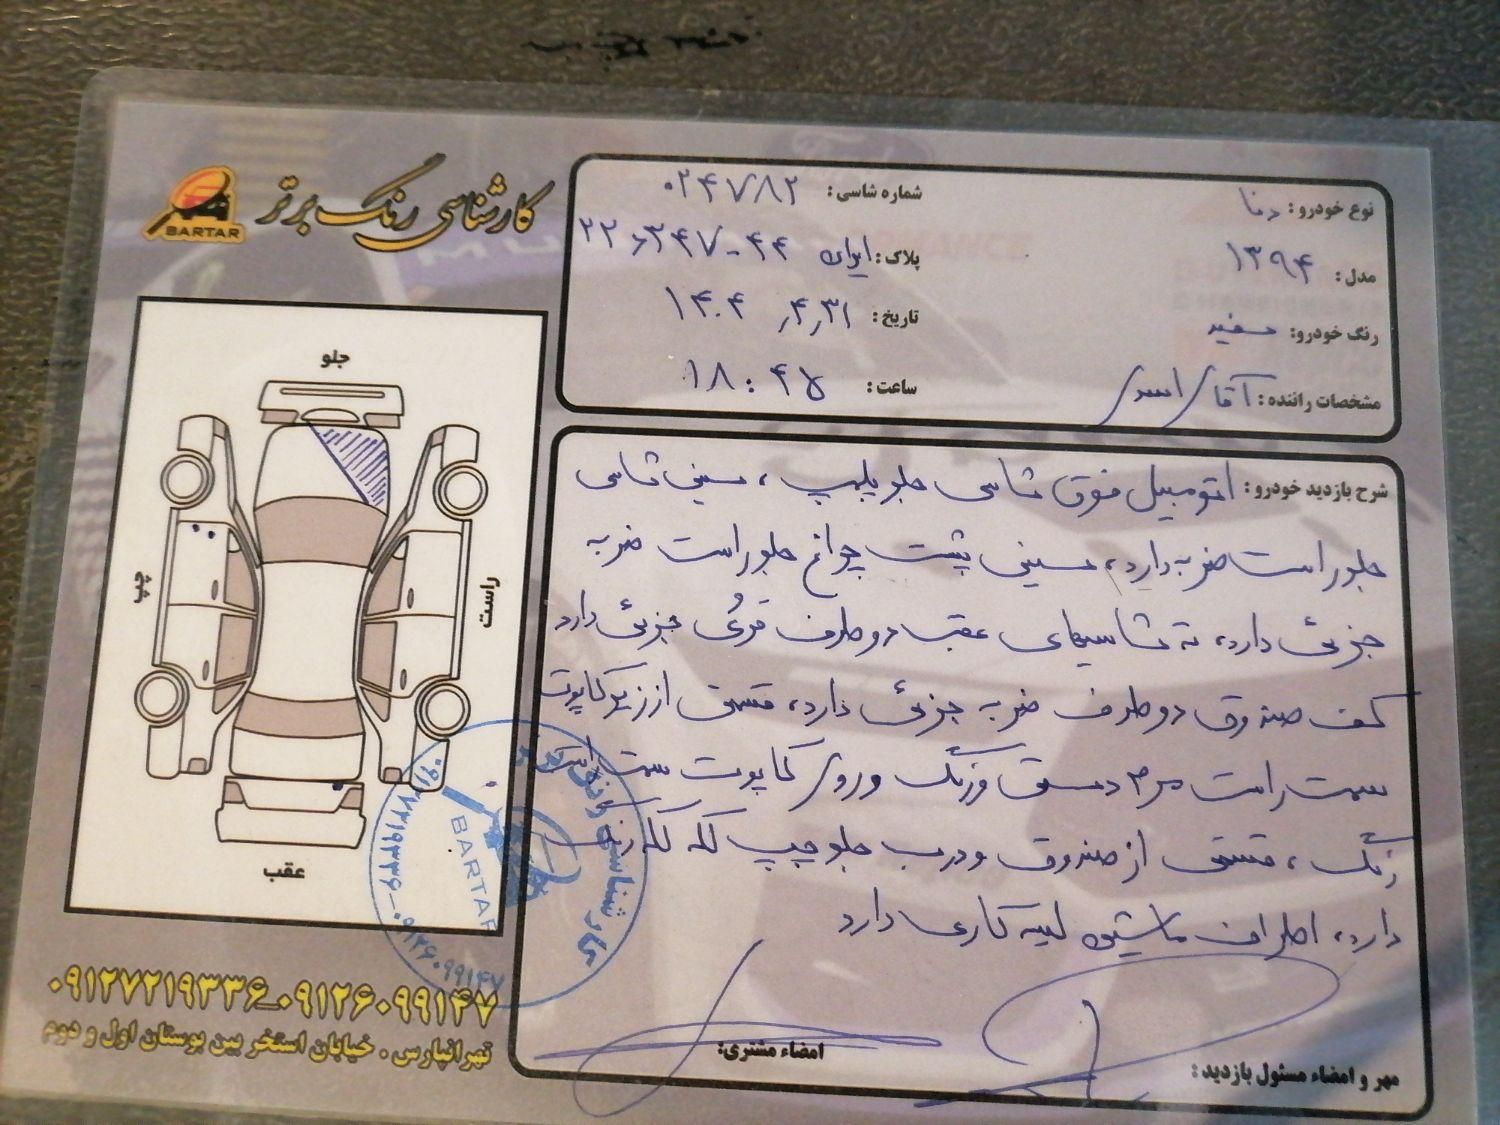 کارشناسی رنگ برتر
BARTAR
نوع خودرو: دنا
شماره شاسی: ۰۲۴۷۸۲
مدل: ۱۳۹۴
پلاک: ایران ۴۴ - ۳۴۷ د ۲۲
رنگ خودرو: سفید
تاریخ: ۱۴۰۴ ,۴,۳۱
مشخصات راننده: آقای اسدی
ساعت: ۱۸:۴۵
شرح بازدید خودرو: اتومبیل فوق شاسی جلو پلمپ ، سینی شاسی
جلو راست ضربه دارد، سینی پشت چراغ جلو راست ضربه
جزئی دارد، ته شاسیهای عقب دو طرف قری جزئی دارد
کف صندوق دو طرف ضربه جزئی دارد، قسمتی از زیر کاپوت
سمت راست مرمت و رنگ و روی کاپوت سمت راست
رنگ ، قسمتی از صندوق و درب جلو چپ لکه لکه رنگ
دارد، اطراف ماشین لیسه کاری دارد
جلو
چپ
راست
عقب
BARTAR
۰۹۱۲۷۲۱۹۳۳۶-۰۹۱۲۶۰۹۹۱۴۷
۰۹۱۲۷۲۱۹۳۳۶-۰۹۱۲۶۰۹۹۱۴۷
تهرانپارس . خیابان استخر بین بوستان اول و دوم
امضاء مشتری:
مهر و امضاء مسئول بازدید: